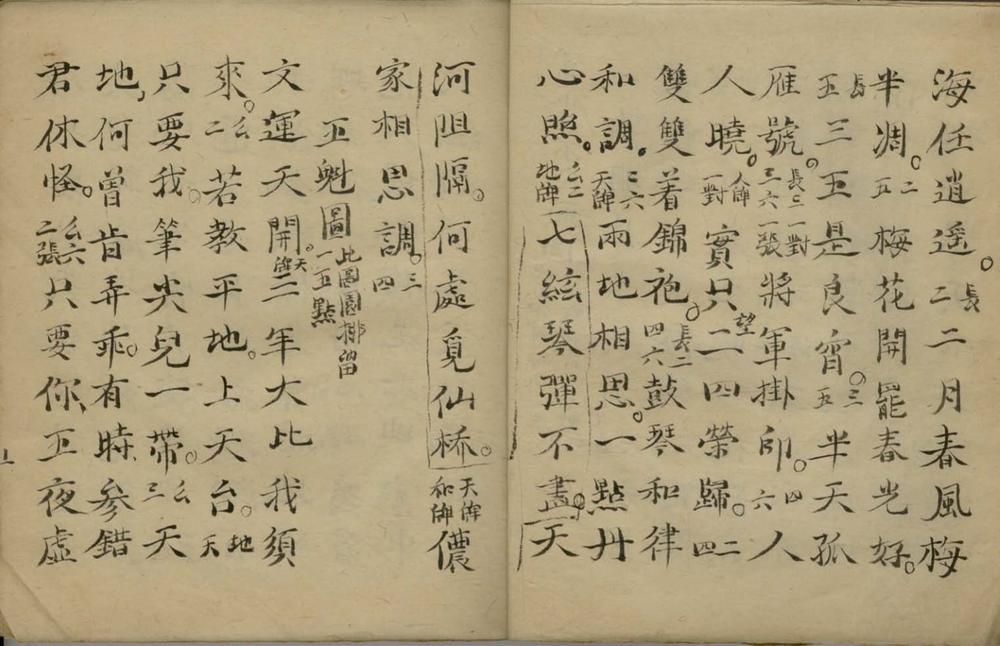 海任逍遥。二長二月春風梅
半凋。五二梅花開罷春光好。
五長三五是良宵。五三半天孤
雁號。長三一對三六一張將軍掛印。四六人
人曉。人牌一對實只望一二四榮歸。二四
雙雙着錦袍。長二四六鼓琴和律
和調。二六天牌兩地相思。一點丹
心照。么二地牌七絃琴彈不盡。天
河阻隔。何處覓仙桥。天牌和牌儂
家相思調。三四
五魁圖此圖圍排留一五點
文運天開。天牌三年大比我須
來。么二若教平地。上天台。地天
只要我。筆尖兒一帶。么三天
地,何曾肯弄乖。有時参錯
君休怪。么六二張只要你,五夜虛